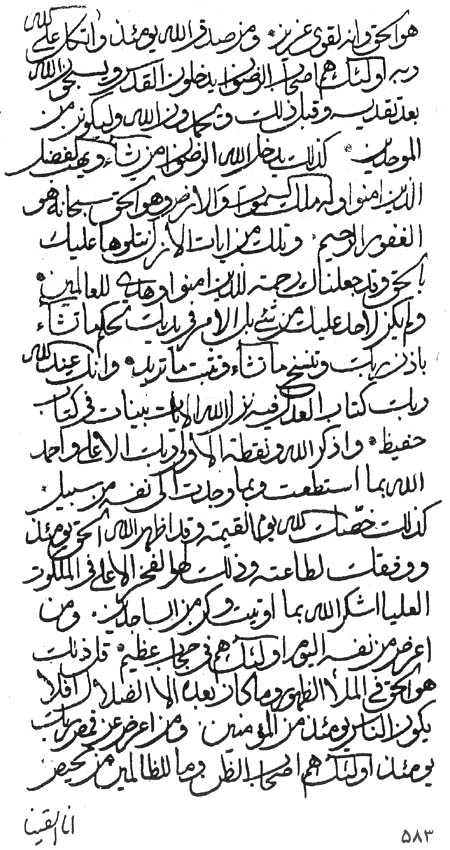 هو الحق وانه لقوي عزيز ومن صدق الله يومئذ واتكل على
ربه اولئك هم اصحاب الرضوان يدخلون القدس ويسبحن الله
بعد تقديسه وقبل ذلك ويحمدون الله وليكونن من
الموحدين كذلك يدخل الله الرضوان من يشاء
الذين امنوا وله ملك السموات والارض وهو الحق سبحانه هو
الغفور الرحيم وتلك من ايات الله نتلوها عليك
بالحق وقد جعلناك رحمة للذين امنوا وهدى للعالمين
ولم يكن لاحد عليك من شئ بل الامر في يديك تحكم ما تشاء
باذن ربك وتنسخ ما تشاء وتثبت ما تريد وانك عند الله
ربك كتاب العدل فيه نزل الله الايات بينات في كتاب
حفيظ واذكر الله ونقطة الاولى ربك الاعلى واحمد
الله بما استطعت وبما وجدت الى نفسه من سبيل
كذلك خصناك الله يوم القيمة وقد اظهر الله الحق يومئذ
ووفقك لطاعته وذلك لهو الفخر الاعلى في الملكوت
العليا اشكر الله بما اوتيت وكن من الساجدين ومن
اعرض من نفسه اليوم اولئك هم في حجاب عظيم قل ذلك
هو الحق في الملأ الظهور وما كان بعده الا الضلال افلا
يكون الناس يومئذ من المؤمنين ومن اعرض عن ربك
يومئذ اولئك هم اصحاب الظن وما للظالمين من محيص
انا القينا
٥٨٣